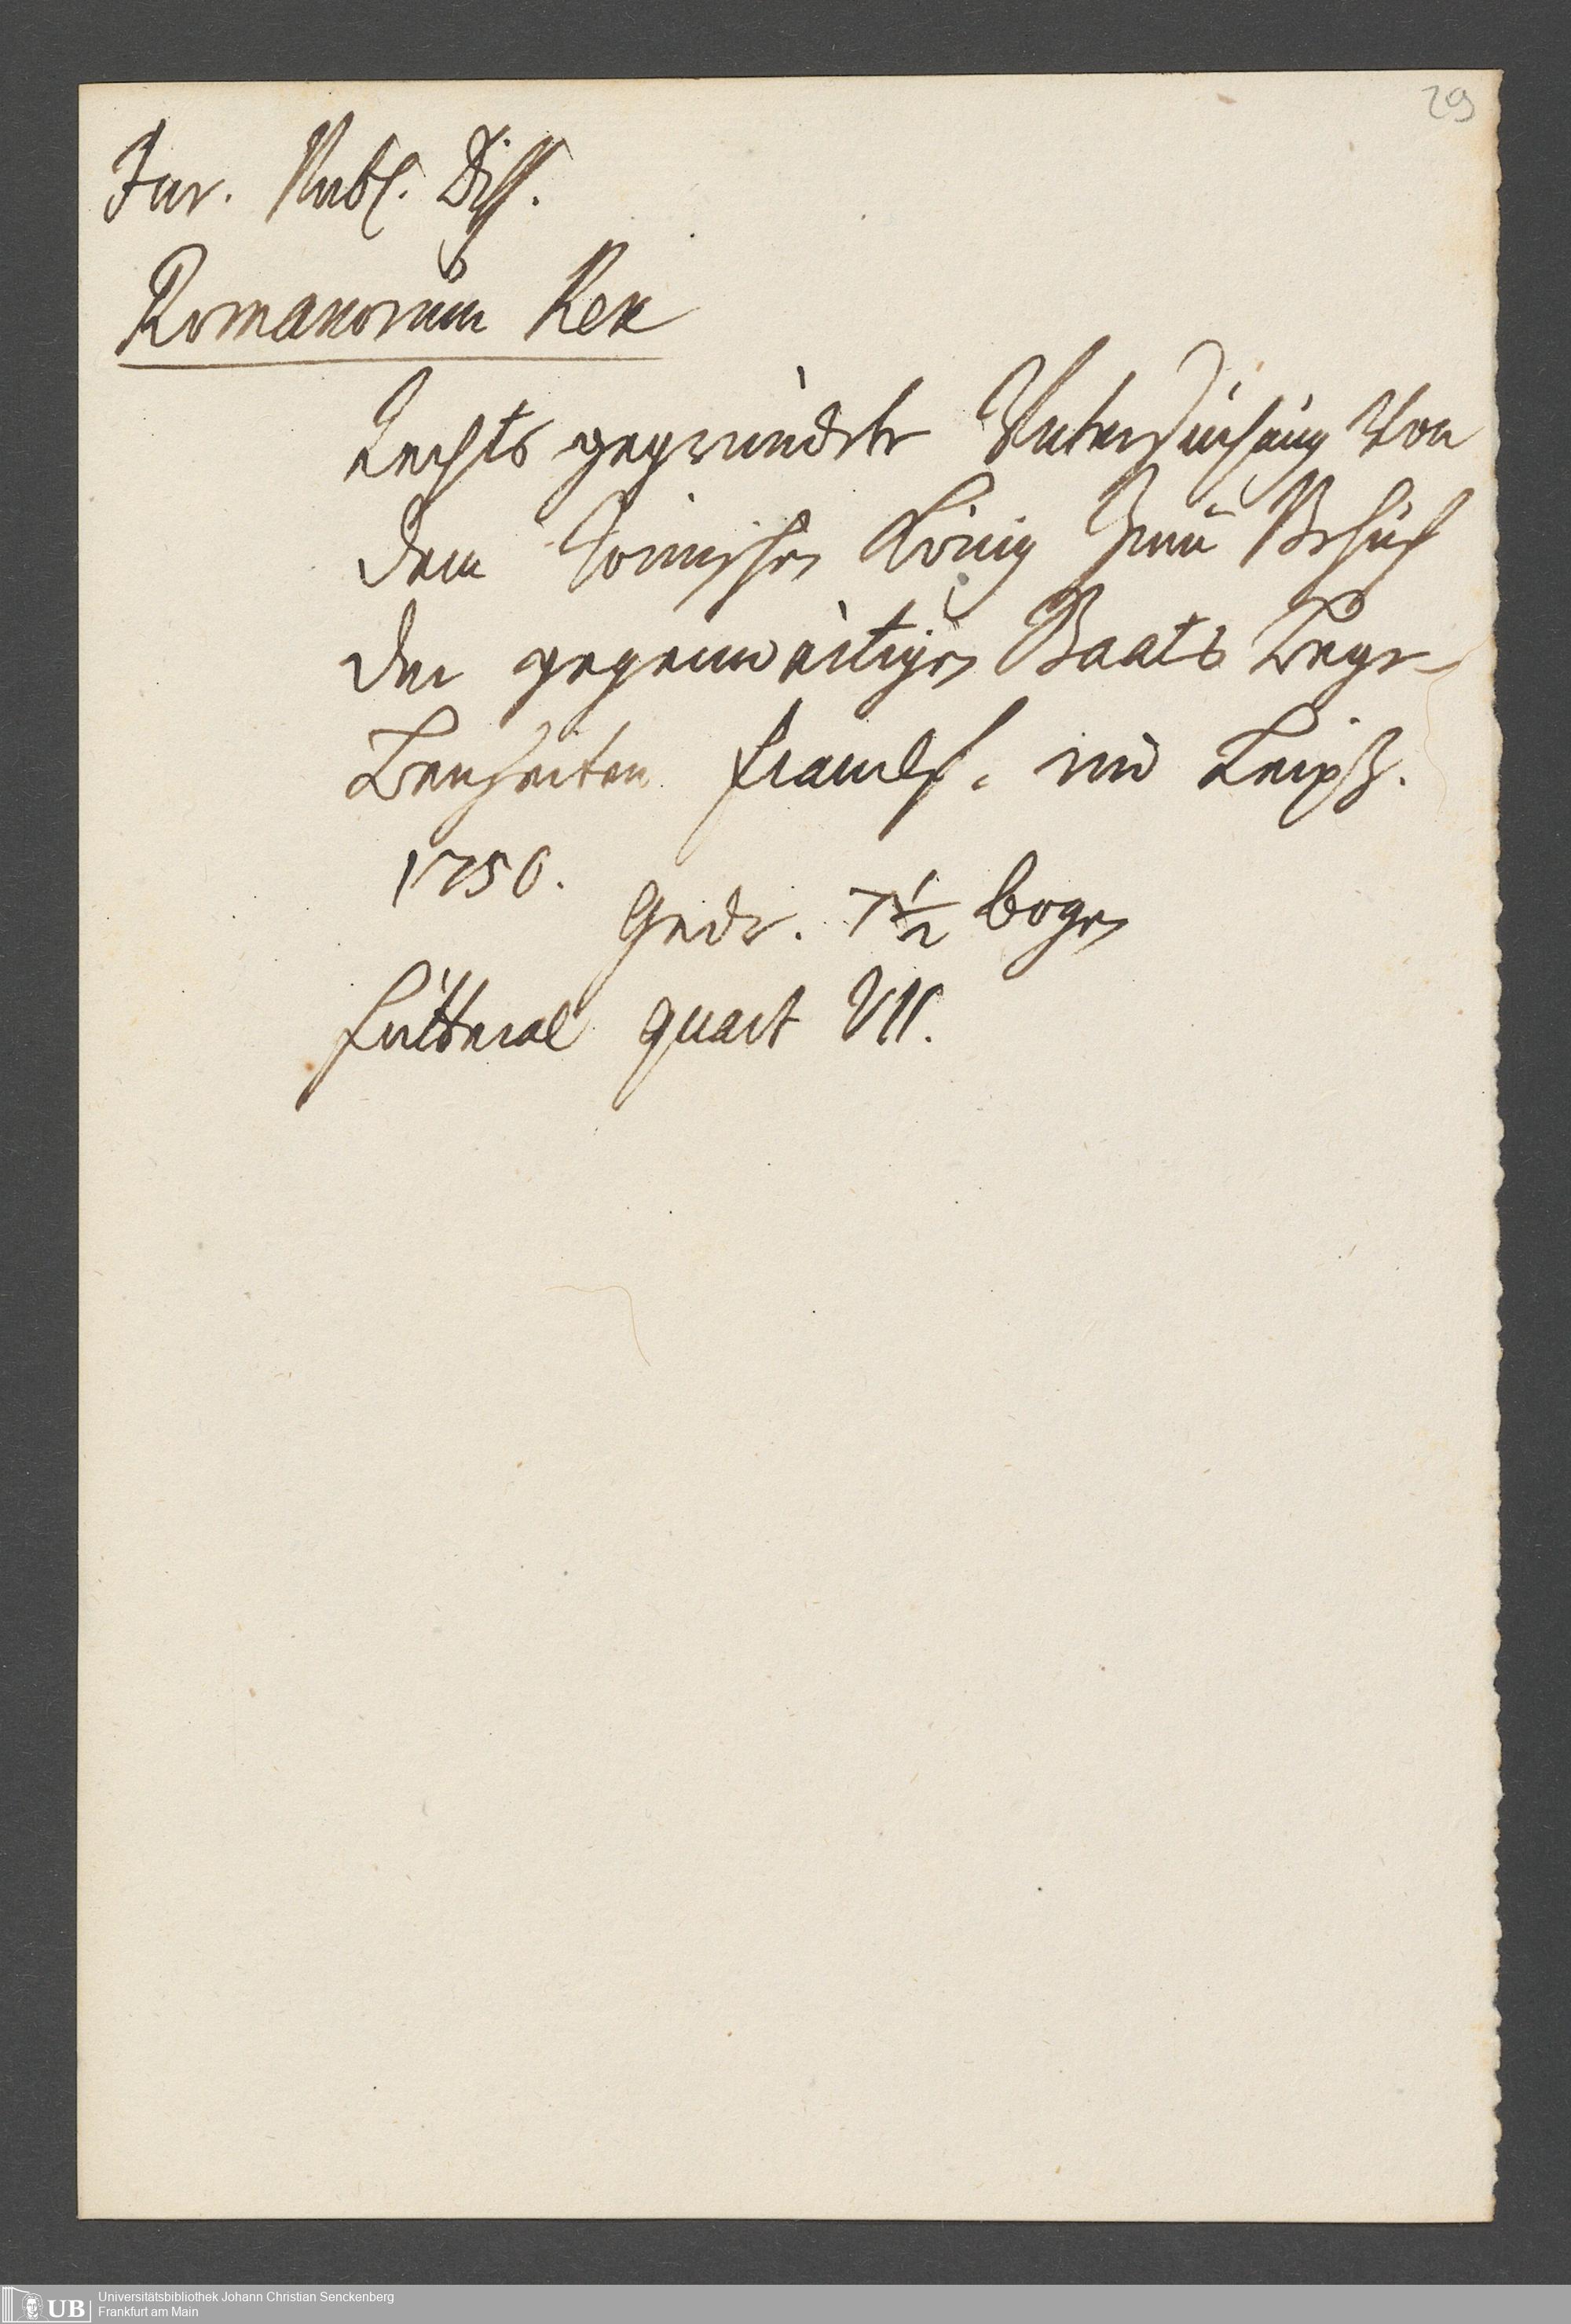 29
Jur. Publ. Diss.
Romanorum Rex
Rechts gegründete Untersuchung Von
dem Römischen König Zum Behuf
der gegenwärtigen Staats Bege-
benheiten. Franckf. und Leipz.
1750.
Gedr. 7 1/2 bogen
Futteral quart VII.
Universitätsbibliothek Johann Christian Senckenberg
Frankfurt am Main
UB